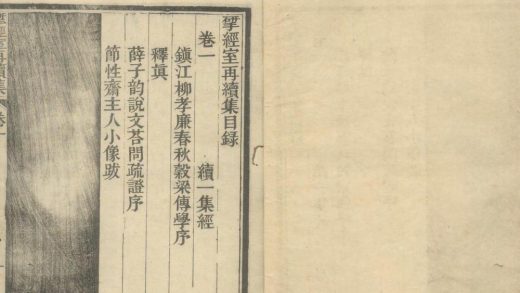 揅經室再續集目錄
卷一　　續一集經
鎮江柳孝廉春秋穀梁傳學序
釋眞
薛子韵說文荅問疏證序
節性齋主人小像跋
揅經室再續集　卷一